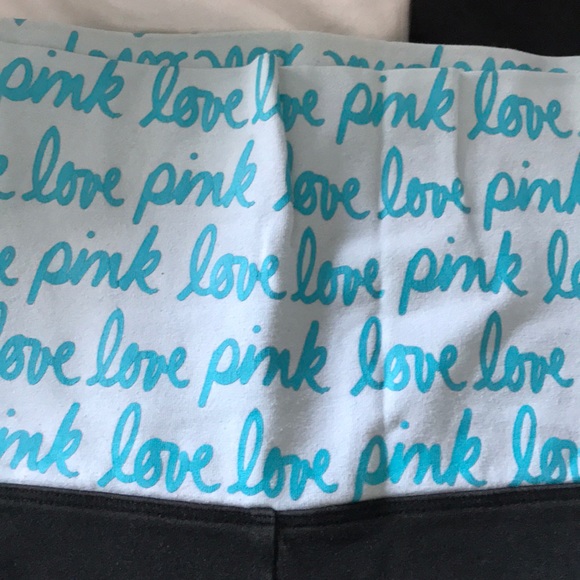 pink love love pink love
love pink love love pink
pink love love pink
love love pink love love
pink love love pink